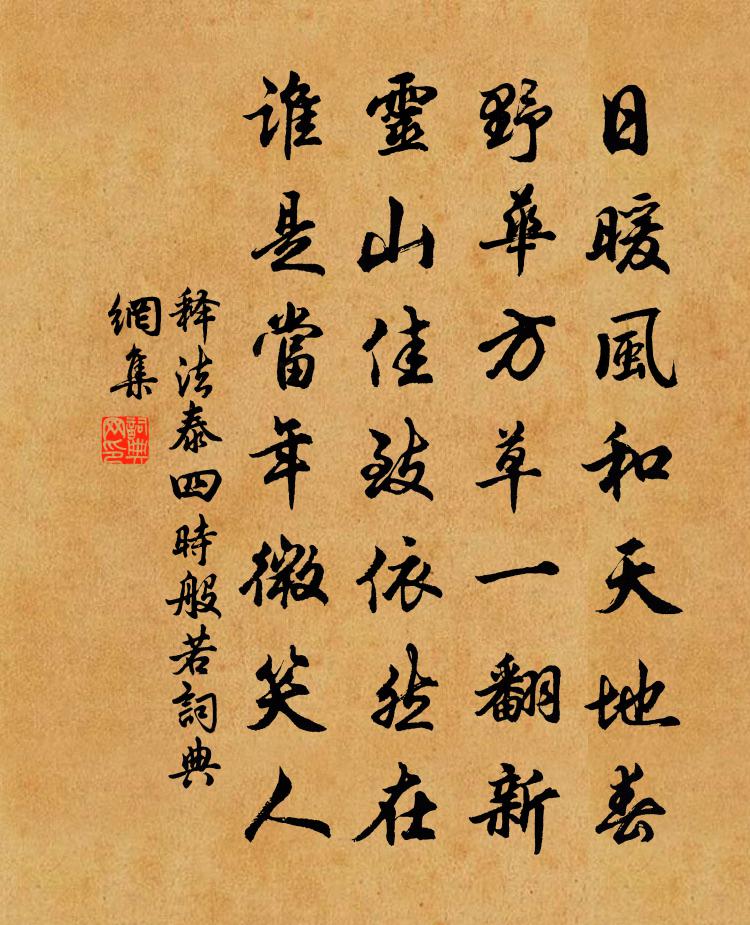 日暖風和天地春
野華方草一翻新
靈山佳致依然在
誰是當年微笑人
释法泰四時般若詞典
網集
詞典
网印